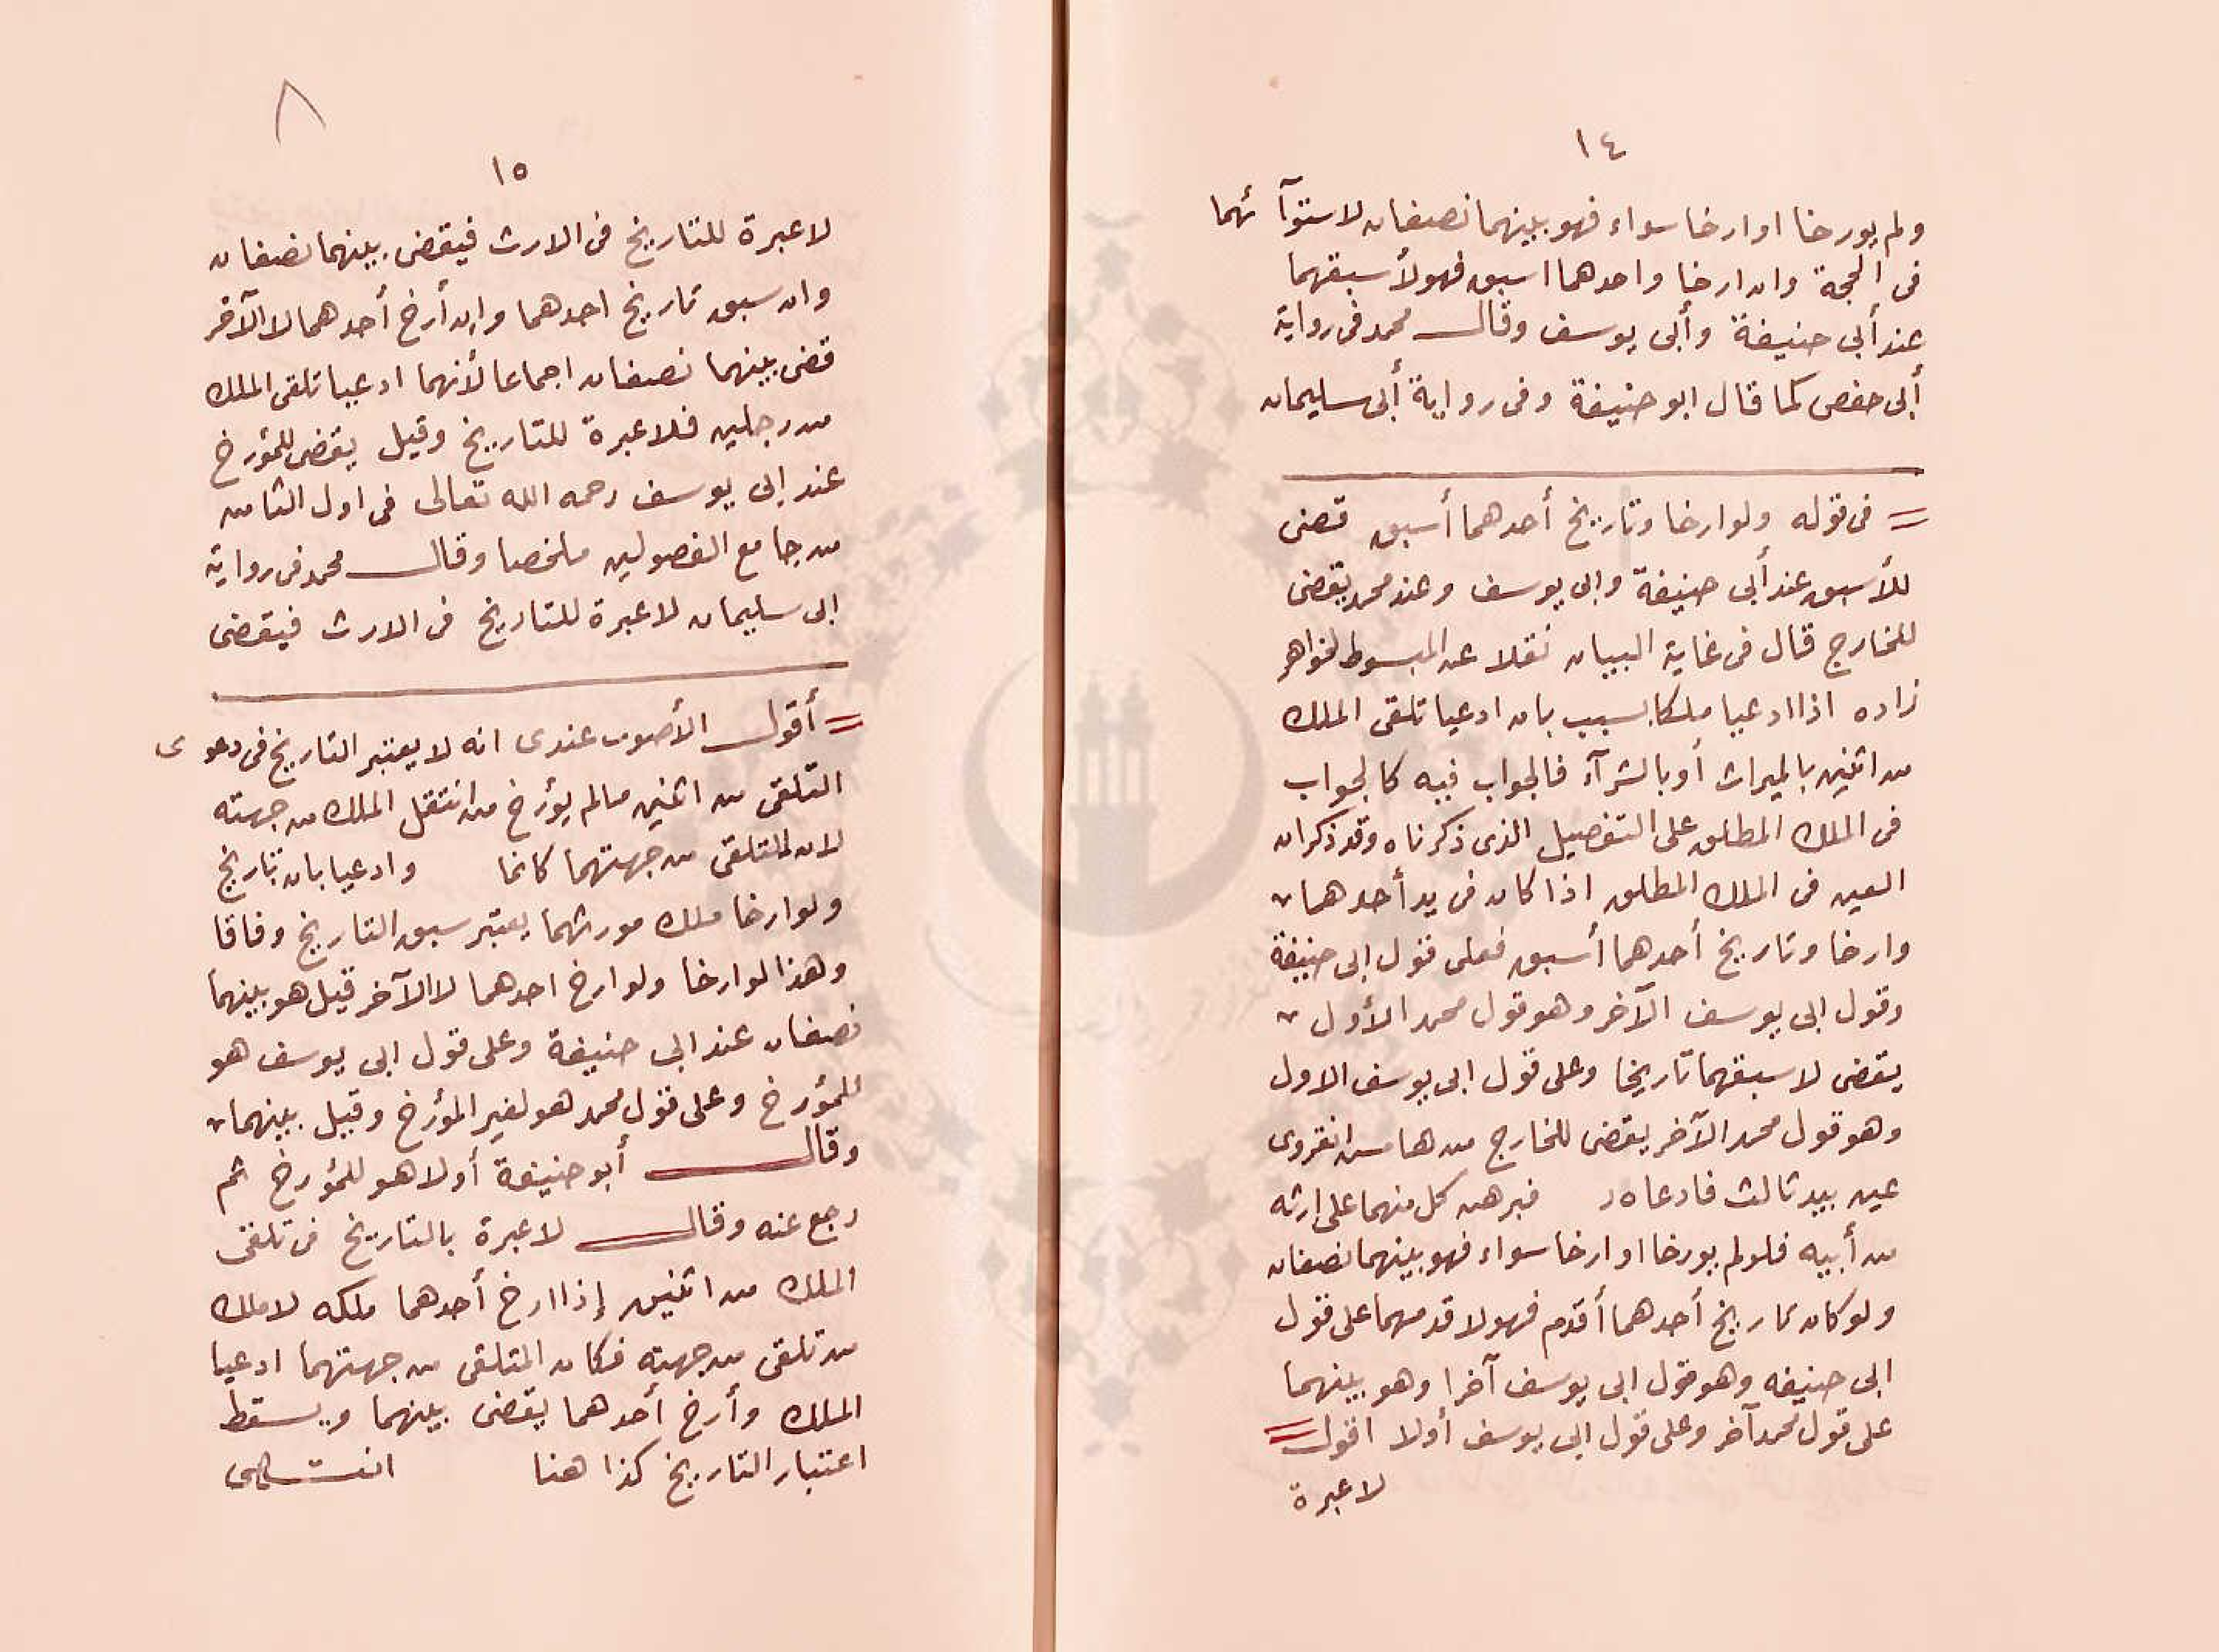 ١٤
ولم يورخا او ارخا سواء فهو بينهما نصفان لاستوآ ئهما
فى الحجة وان ارخا واحدهما اسبق فهو لأسبقهما
عند أبى حنيفة وأبى يوسف وقال محمد فى رواية
أبى حفص كما قال ابو حنيفة وفى رواية أبى سليمان
= فى قوله ولو ارخا وتاريخ أحدهما أسبق قضى
للأسبق عند أبى حنيفة وابى يوسف وعند محمد يقضى
للخارج قال فى غاية البيان نقلا عن المبسوط لخواهر
زاده اذا ادعيا ملكا بسبب بان ادعيا تلقى الملك
من اثنين بالميراث أو بالشرآء فالجواب فيه كالجواب
فى الملك المطلق على التفصيل الذى ذكرناه وقد ذكر ان
العين فى الملك المطلق اذا كان فى يد أحدهما
وارخا وتاريخ أحدهما أسبق فعلى قول ابى حنيفة
وقول ابى يوسف الآخر وهو قول محمد الأول
يقضى لاسبقهما تاريخا وعلى قول ابى يوسف الاول
وهو قول محمد الآخر يقضى للخارج من هامش انقروى
عين بيد ثالث فادعاه فبرهن كل منهما على ارثه
من أبيه فلو لم يورخا او ارخا سواء فهو بينهما نصفان
ولو كان تاريخ أحدهما أقدم فهو لاقدمهما على قول
ابى حنيفه وهو قول ابى يوسف آخرا وهو بينهما
على قول محمد آخر وعلى قول ابى يوسف أولا اقول =
لاعبرة
٨
١٥
لاعبرة للتاريخ فى الارث فيقضى بينهما نصفان
وان سبق تاريخ احدهما وان أرخ أحدهما لا الآخر
قضى بينهما نصفان اجماعا لأنهما ادعيا تلقى الملك
من رجلين فلاعبرة للتاريخ وقيل يقضى للمؤرخ
عند ابى يوسف رحمه الله تعالى فى اول الثامن
من جامع الفصولين ملخصا وقال محمد فى رواية
ابى سليمان لاعبرة للتاريخ فى الارث فيقضى
= أقول الأصوب عندى انه لا يعتبر التاريخ فى دعوى
التلقى من اثنين مالم يؤرخ من انتقل الملك من جهته
لان المتلقى من جهتهما كانما وادعيا بان تاريخ
ولو ارخا ملك مورثهما يعتبر سبق التاريخ وفاقا
وهذا لو ارخا ولو ارخ احدهما لا الآخر قيل هو بينهما
نصفان عند ابى حنيفة وعلى قول ابى يوسف هو
للمؤرخ وعلى قول محمد هو لغير المؤرخ وقيل بينهما
وقال أبو حنيفة أولا هو للمؤرخ ثم
رجع عنه وقال لاعبرة بالتاريخ فى تلقى
الملك من اثنين إذا ارخ أحدهما ملكه لا ملك
من تلقى من جهته فكان المتلقى من جهتهما ادعيا
الملك وأرخ أحدهما يقضى بينهما ويسقط
اعتبار التاريخ كذا هنا انتهى